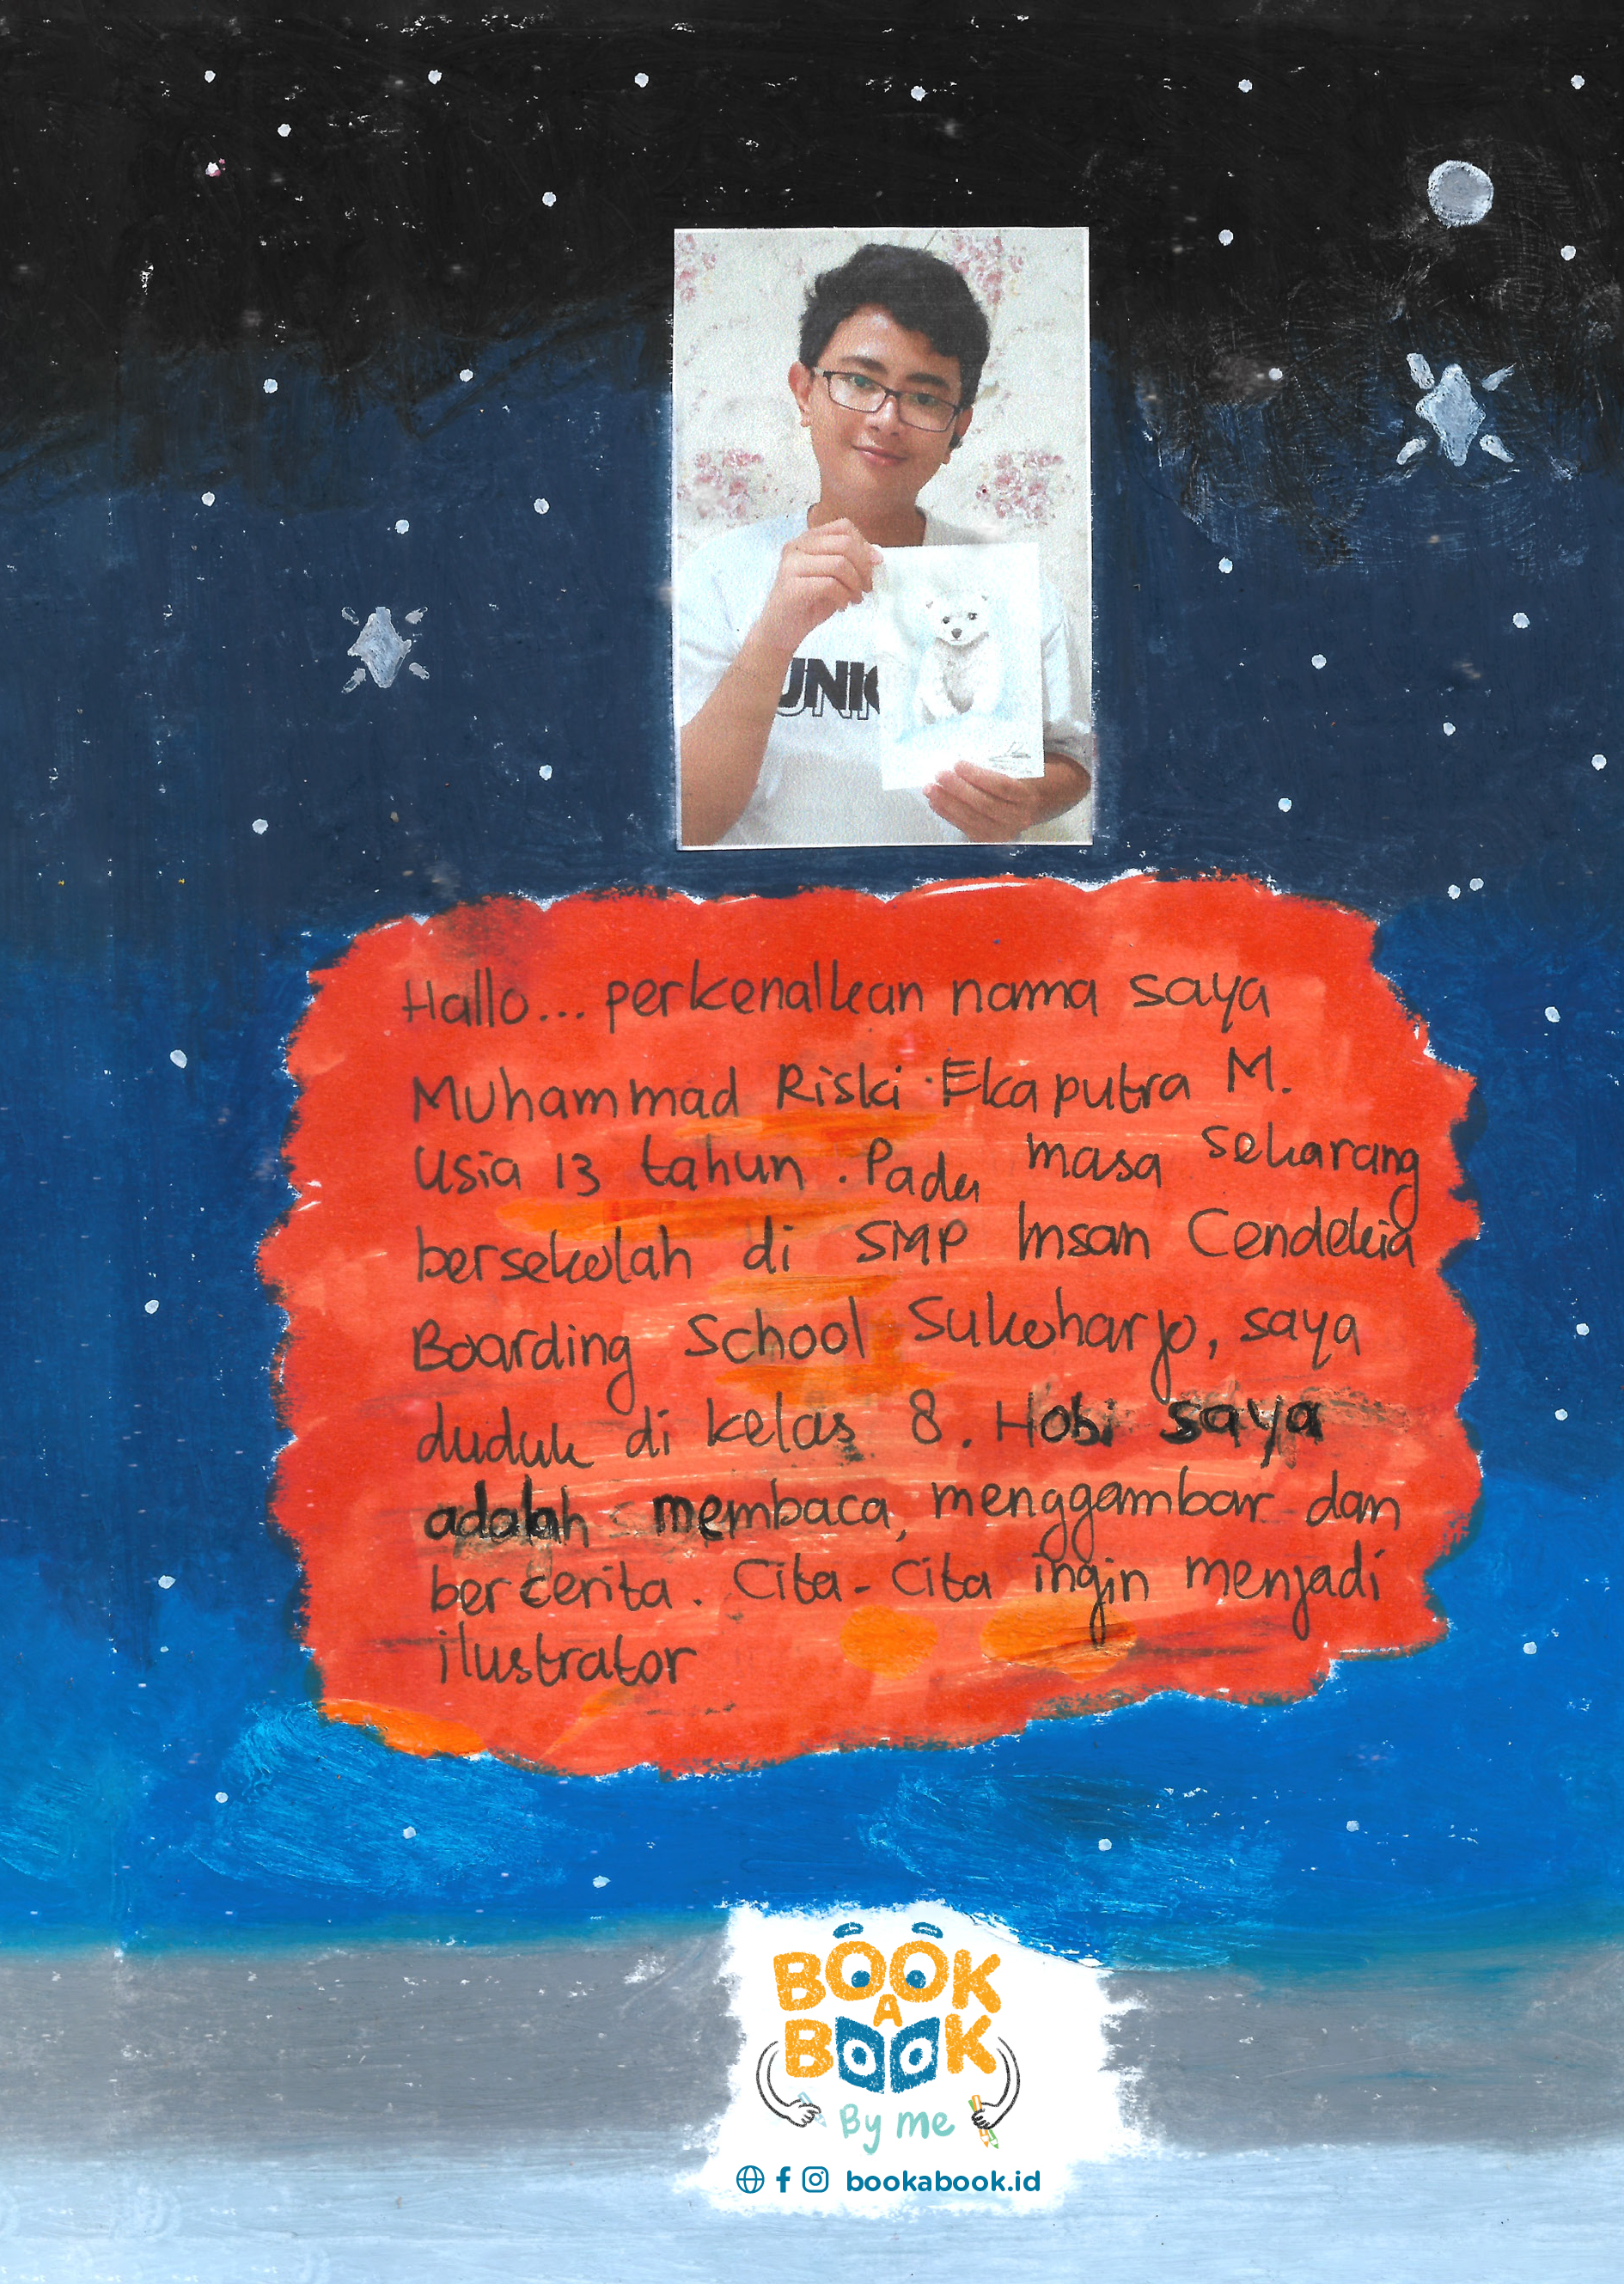 UNIC
Hallo... perkenalkan nama saya
Muhammad Riski Ekaputra M.
Usia 13 tahun. Pada masa sekarang
bersekolah di SMP Insan Cendekia
Boarding School Sukoharjo, saya
duduk di kelas 8. Hobi saya
adalah membaca, menggambar dan
bercerita. Cita-Cita ingin menjadi
ilustrator
BOOK
A
BOOK
By me
bookabook.id